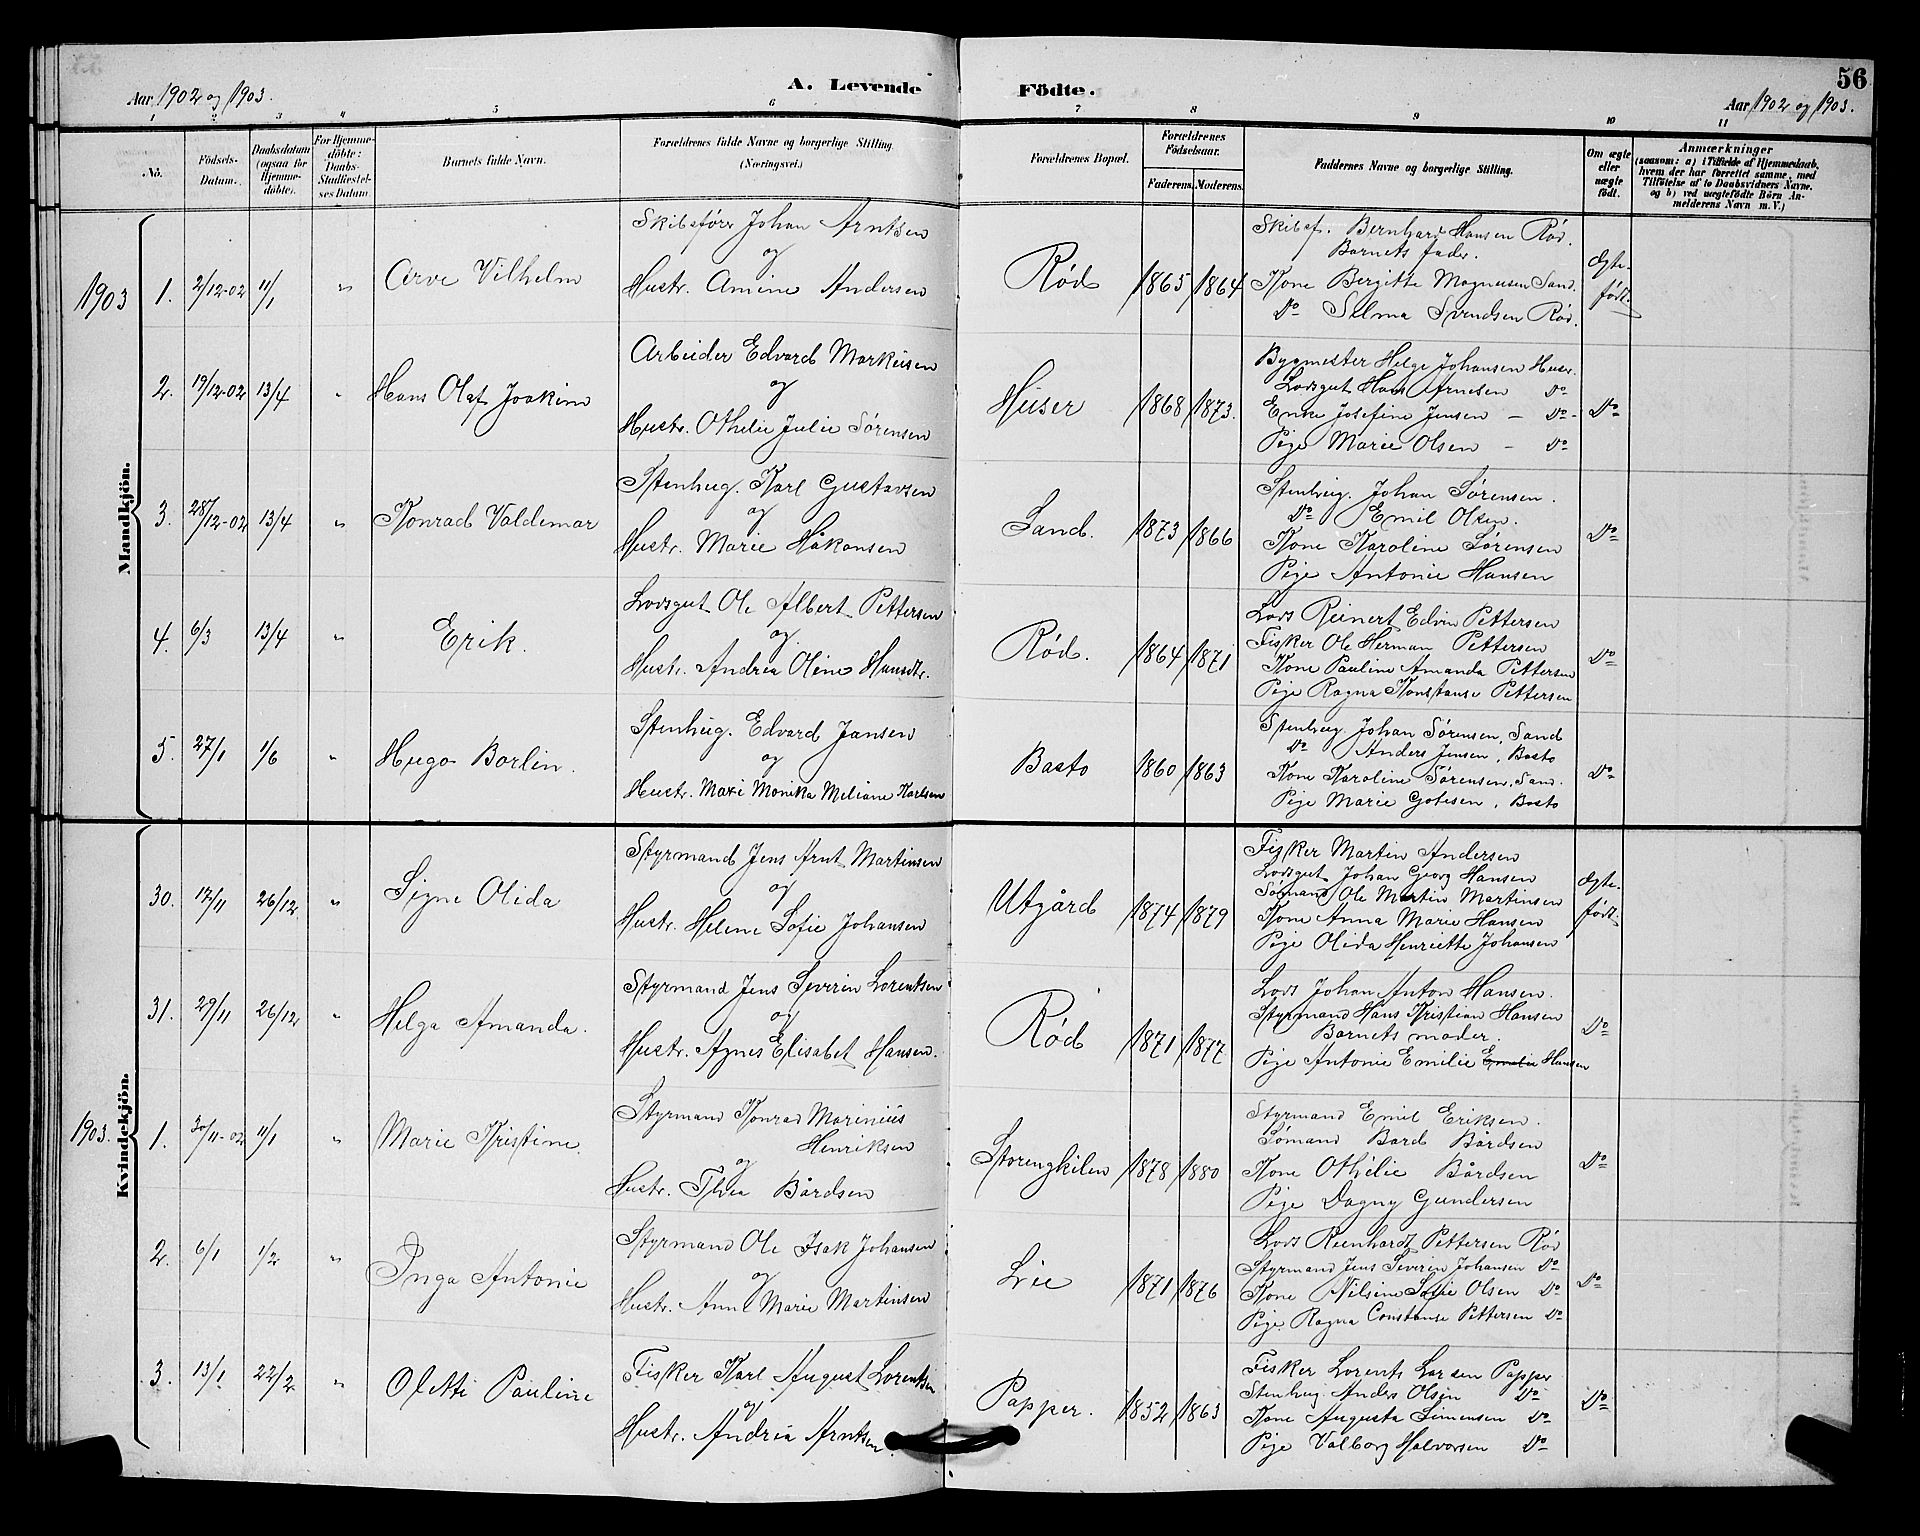 Aar 1902 og 1903.
A. Levende Födte.
56
Aar 1902 og 1903.
1 2 3 4 5 6 7 8 9 10 11
No.
Födsels-Datum.
Daabsdatum (ogsaa for Hjemme-döbte).
For Hjemme-döbte: Daabs-Stadfæstel-ses Datum.
Barnets fulde Navn.
Forældrenes fulde Navne og borgerlige Stilling. (Næringsvei.)
Forældrenes Bopæl.
Forældrenes Födselsaar.
Faderens. Moderens.
Faddernes Navne og borgerlige Stilling.
Om ægte eller uægte födt.
Anmærkninger
(saasom: a) i Tilfælde af Hjemmedaab, hvem der har forrettet samme, med Tilföielse af to Daabsvidners Navne, og b) ved uægtefödte Börn Anmelderens Navn m. V.)
Mandkjön.
1903 1. 2/12-02 11/1 " Arve Vilhelm
Skibsfører Johan Arntsen
og
Hustr. Amine Andersen
Rød 1865 1864
Skibsf. Bernhard Hansen Rød.
Barnets fader.
Kone Bergitte Magnusen Sand.
Do Selma Svendsen Rød.
Ægte-født.
2. 19/12-02 13/4 " Hans Olaf Joakim
Arbeider Edvard Markusen
og
Hustr. Othelie Julie Sørensen
Huser 1868 1873.
Bygmester Helge Johansen Huser
Lodsgut Hans Arnesen Do
Enke Josefine Jensen - Do -
Pige Marie Olsen - Do
Do
3. 28/12-02 13/4 " Konrad Valdemar
Stenhug. Karl Gustavsen
og
Hustr. Marie Håkonsen
Sand. 1873 1866
Stenhug. Johan Sørensen.
Do Emil Olsen.
Kone Karoline Sørensen
Pige Antonie Hansen
Do
4. 6/3 13/4 " Erik.
Lodsgut Ole Albert Pettersen
og
Hustr. Andrea Oline Hansdtr.
Rød. 1864 1871
Lods Reinert Edvin Pettersen
Fisker Ole Herman Pettersen
Kone Pauline Amanda Pettersen
Pige Ragna Konstanse Pettersen
Do
5. 27/1 1/6 " Hugo Borlin.
Stenhug. Edvard Jansen
og
Hustr. Maxi Monika Meliane Karlsen
Basto 1860 1863
Stenhug. Johan Sørensen, Sand
Do Anders Jensen, Basto
Kone Karoline Sørensen, Sand.
Pige Marie Gotesen, Basto
Do
Kvindekjön.
30. 17/11 26/12 " Signe Olida
Styrmand Jens Arnt Martinsen
og
Hustr. Helene Sofie Johansen
Utgård 1874 1879
Fisker Martin Andersen
Lodsgut Johan Georg Hansen
Sømand Ole Martin Martinsen
Kone Anna Marie Hansen
Pige Olida Henriette Johansen
Ægte-født.
31. 29/11 26/12 " Helga Amanda.
Styrmand Jens Severin Lorentsen
og
Hustr. Agnes Elisabet Hansen.
Rød 1871 1877
Lods Johan Anton Hansen.
Styrmand Hans Kristian Hansen
Barnets moder.
Pige Antonie Emilie Emelie Hansen
Do
1903. 1. 30/11-02 11/1 " Marie Kristine.
Styrmand Konrad Marinius
Henriksen
og
Hustr. Thea Bårdsen
Storengkilen 1878 1880
Styrmand Emil Eriksen.
Sømand Bard Bårdsen
Kone Othelie Bårdsen
Pige Dagny Gundersen
Do
2. 6/1 1/2 " Inga Antonie
Styrmand Ole Isak Johansen
og
Hustr. Anne Marie Martinsen
Lie 1871 1876
Lods Reinhardt Pettersen Rød
Styrmand Jens Severin Johansen Do
Kone Nilsine Sofie Olsen Do
Pige. Ragna Constanse Pettersen Do
Do
3. 13/1 22/2 " Oletti Pauline
Fisker Karl August Lorentsen
og
Hustr. Andrea Arntsen.
Papper. 1852 1863
Fisker Lorents Larsen Papper
Stenhug. Anders Olsen Do
Kone Augusta Simensen Do
Pige Valborg Halvorsen Do
Do